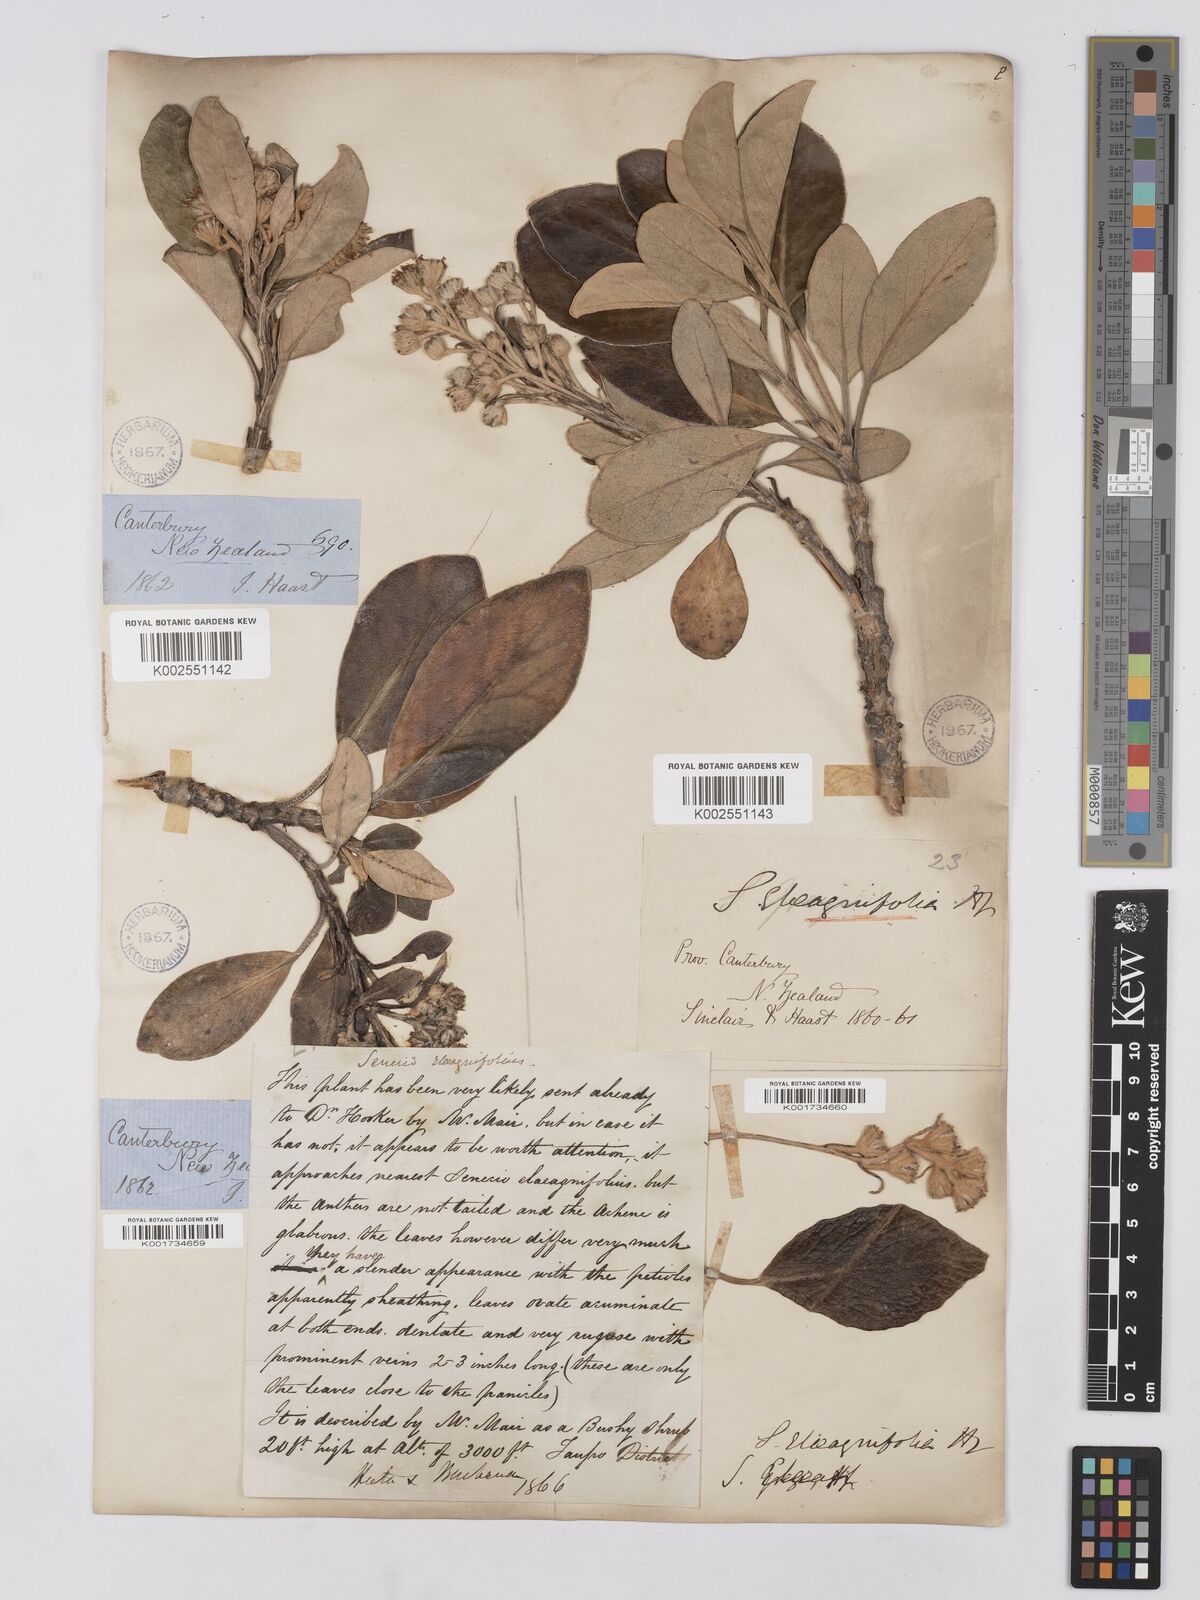 HERBARIUM
1867.
HOOKERIANUM
Canterbury
New Zealand 690.
1862 J. Haast
ROYAL BOTANIC GARDENS KEW
K002551142
HERBARIUM
1867.
HOOKERIANUM
ROYAL BOTANIC GARDENS KEW
K002551143
23
S. Elæagnifolia Hf
Prov. Canterbury
N. Zealand
Sinclair & Haast 1860-61
HERBARIUM
1867.
HOOKERIANUM
Canterbury
New Zea
1862 J.
ROYAL BOTANIC GARDENS KEW
K001734659
Senecio elaeagnifolius.
This plant has been very likely sent already
to Dr Hooker by Mr. Mair, but in case it
has not, it appears to be worth attention, it
approaches nearest Senecio elaeagnifolius. but
the anthers are not tailed and the Achene is
glabrous. the leaves however differ very much
they have
a slender appearance with the petioles
apparently sheathing, leaves ovate acuminate
at both ends. dentate and very rugose with
prominent veins 2-3 inches long. (these are only
the leaves close to the panicles)
It is described by Mr. Mair as a Bushy shrub
20 ft high at Alt. of 3000 ft. Taupo District
1866
ROYAL BOTANIC GARDENS KEW
K001734660
S. Elæagnifolia Hf
S.
inches
D50 Illuminant, 2 degree observer
Density
Don Williams
M000857
centimetre
Royal Botanic Gardens
Kew
0 1 2 3 4 5 6 7 8 9 10
cm
copyright reserved